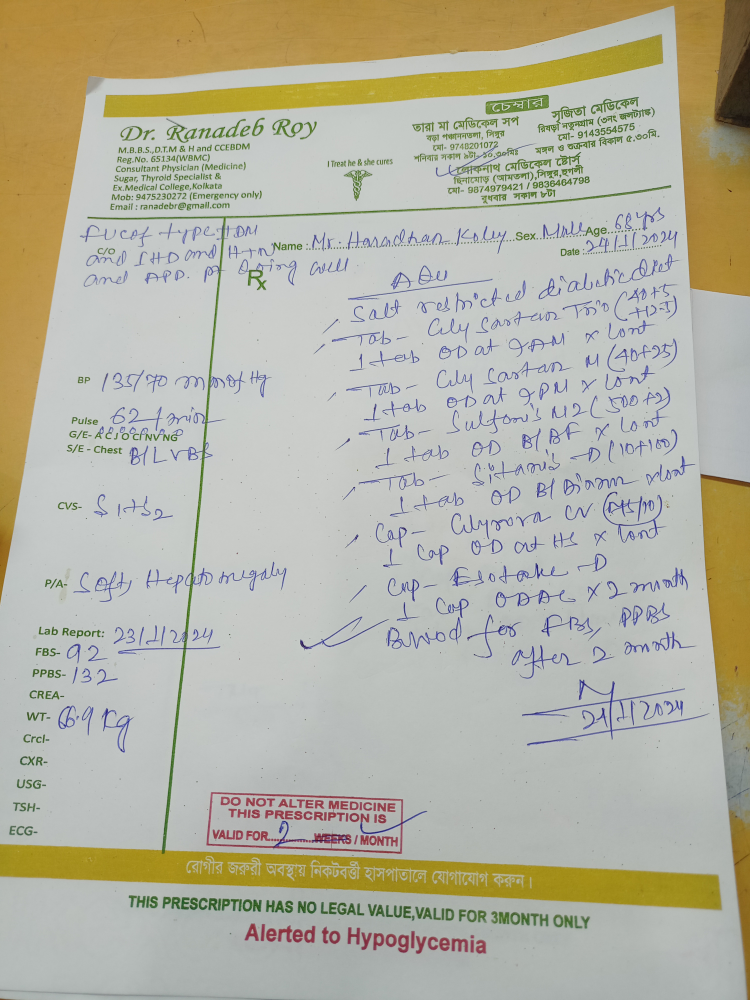 চেম্বার
Dr. Ranadeb Roy
M.B.B.S,D.T.M & H and CCEBDM
Reg.No. 65134(WBMC)
Consultant Physician (Medicine)
Sugar, Thyroid Specialist &
Ex.Medical College,Kolkata
Mob: 9475230272 (Emergency only)
Email : ranadebr@gmail.com
I Treat he & she cures
তারা মা মেডিকেল সপ
বড়া পঞ্চাননতলা, সিঙ্গুর
মো- 9748201072
শনিবার সকাল ৯টা-১০.৩০মিঃ
সৃজিতা মেডিকেল
রিষড়া নতুনগ্রাম (৩নং জলট্যাঙ্ক)
মো- 9143554575
মঙ্গল ও শুক্রবার বিকাল ৫.৩০মি.
লোকনাথ মেডিকেল ষ্টোর্স
ছিনামোড় (আমতলা),সিঙ্গুর,হুগলী
মো- 9874979421 / 9836464798
বুধবার সকাল ৮টা
Name : Mr. Haradhan Koley Sex Male Age 68 yrs
Date : 24/1/2024
C/O
F/U c of type II DM
and IHD and HTN
and APD. Pt doing well
Rx
Adv
Salt restricted diabetic diet
Tab- Cily Sartan Trio (40+5
+12.5)
1 tab OD at 9 AM x cont
Tab- Cily Sartan M (40+25)
1 tab OD at 9 PM x cont
Tab- M2 (500+2)
1 tab OD B/BF x cont
Tab- -D (10+100)
1 tab OD B/Dinner x cont
Cap- CV
1 Cap OD at HS x cont
Cap- -D
1 Cap OD AC x 2 month
Blood for FBS, PPBS
after 2 month
24/1/2024
BP 135/70 mm of Hg
Pulse 62/min
G/E- A C J O CI NV NG
S/E - Chest B/L VBS
CVS- S1+S2
P/A- Soft, Hepatomegaly
Lab Report: 23/1/2024
FBS- 92
PPBS- 132
CREA-
WT- kg
Crcl-
CXR-
USG-
TSH-
ECG-
DO NOT ALTER MEDICINE
THIS PRESCRIPTION IS
VALID FOR....2....WEEKS / MONTH
রোগীর জরুরী অবস্থায় নিকটবর্ত্তী হাসপাতালে যোগাযোগ করুন।
THIS PRESCRIPTION HAS NO LEGAL VALUE,VALID FOR 3MONTH ONLY
Alerted to Hypoglycemia